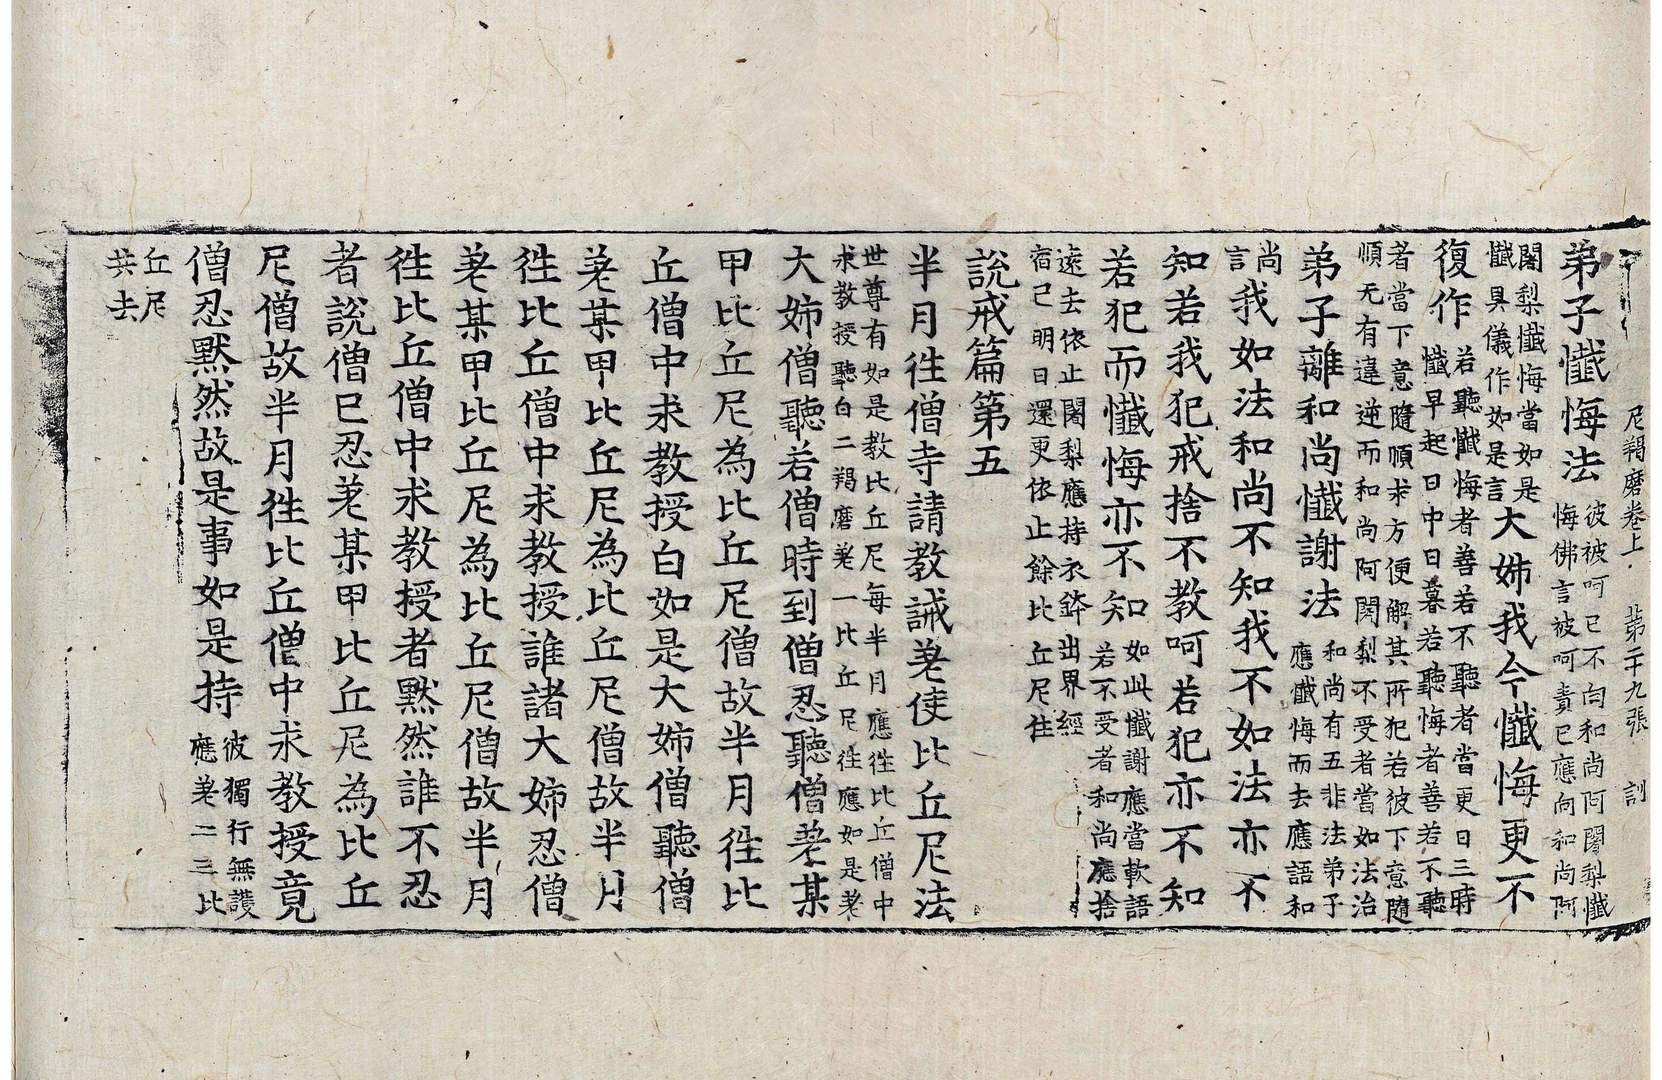 尼羯磨卷上 第二十九張 訓
弟子懺悔法 彼被呵已不向和尚阿闍梨懺
悔佛言被呵責已應向和尚阿
闍梨懺悔當如是
懺具儀作如是言 大姊我今懺悔更不
復作 若聽懺悔者善若不聽者當更日三時
懺早起日中日暮若聽悔者善若不聽
者當下意隨順求方便解其所犯若彼下意隨
順无有違逆而和尚阿闍梨不受者當如法治
弟子離和尚懺謝法 和尚有五非法弟子
應懺悔而去應語和
尚
言 我如法和尚不知我不如法亦不
知若我犯戒捨不教呵若犯亦不知
若犯而懺悔亦不知 如此懺謝應當軟語
若不受者和尚應捨
遠去依止闍梨應持衣鉢出界經
宿已明日還更依止餘比丘尼住
說戒篇第五
半月往僧寺請教誡差使比丘尼法
世尊有如是教比丘尼每半月應往比丘僧中
求教授聽白二羯磨差一比丘尼往應如是差
大姊僧聽若僧時到僧忍聽僧差某
甲比丘尼為比丘尼僧故半月往比
丘僧中求教授白如是大姊僧聽僧
差某甲比丘尼為比丘尼僧故半月
往比丘僧中求教授誰諸大姊忍僧
差某甲比丘尼為比丘尼僧故半月
往比丘僧中求教授者默然誰不忍
者說僧已忍差某甲比丘尼為比丘
尼僧故半月往比丘僧中求教授竟
僧忍默然故是事如是持 彼獨行無護
應差二三比
丘尼
共去